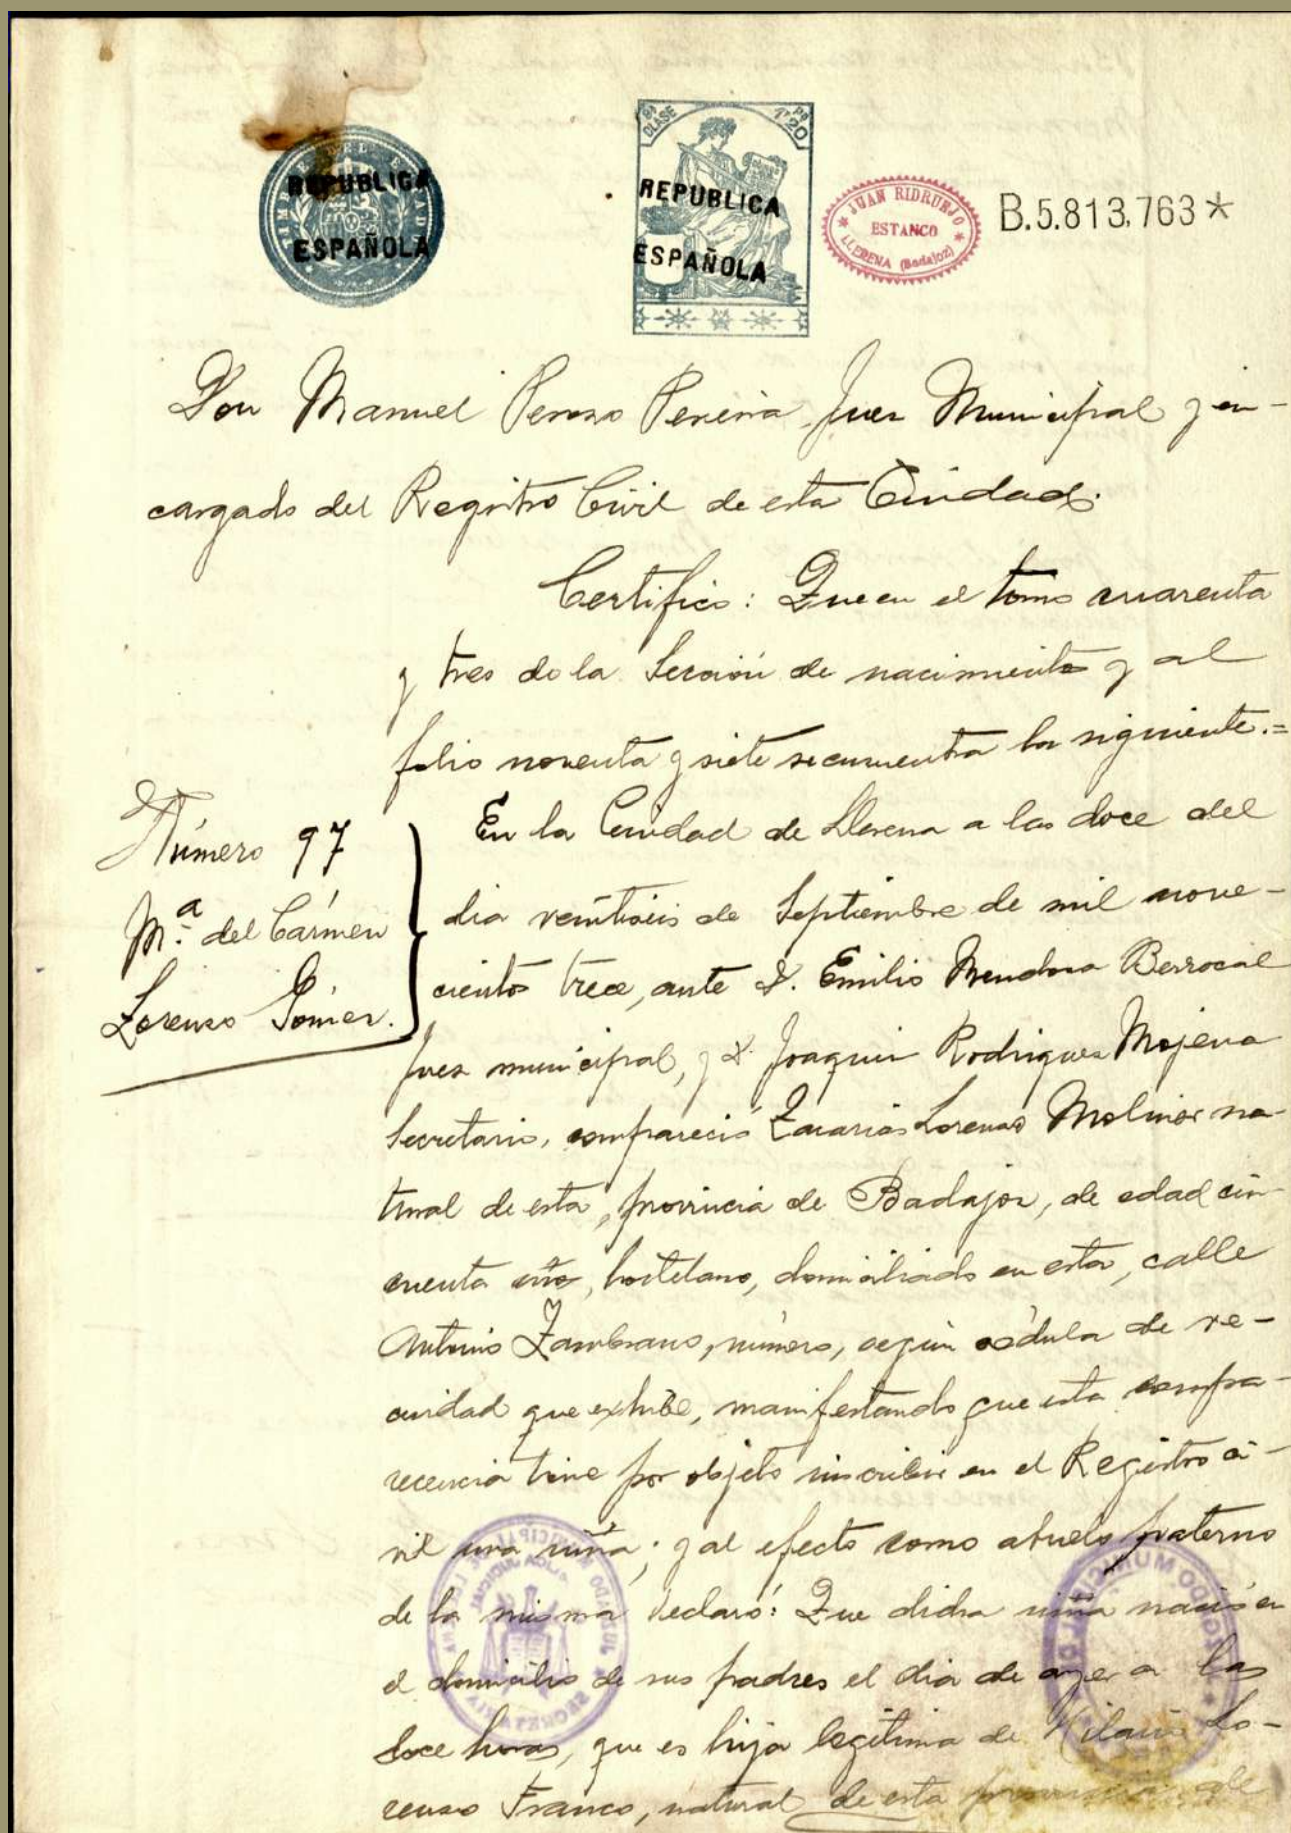 TIMBRE DEL ESTADO
REPUBLICA
ESPAÑOLA
8ª CLASE
1 pta 20
REPUBLICA
ESPAÑOLA
JUAN RIDRUEJO
ESTANCO
LLERENA (Badajoz)
B.5.813.763*
Don Manuel Perozo Pereira Juez Municipal y en-
cargado del Registro Civil de esta Ciudad.
Certifico: Que en el tomo cuarenta
y tres de la Sección de nacimiento y al
folio noventa y siete se encuentra lo siguiente.=
Número 97
Mª del Cármen
Lorenzo Gómez.
En la Ciudad de Llerena a las doce del
dia veintiseis de Septiembre de mil nove-
ciento trece, ante D. Emilio Mendoza Berrocal
Juez municipal, y D. Joaquin Rodriguez Mojena
Secretario, compareció Zacarias Lorenzo Molinos na-
tural de esta, provincia de Badajoz, de edad cin-
cuenta año, hortelano, domiciliado en esta, calle
Antonio Zambrano, número, según cédula de ve-
cindad que exhibe, manifestando que esta compa-
recencia tiene por objeto inscribir en el Registro ci-
vil una niña; y al efecto como abuelo paterno
de la misma declaró: Que dicha niña nació en
el domicilio de sus padres el dia de ayer a las
doce horas, que es hija legitima de Hilario Lo-
renzo Franco, natural de esta provincia de